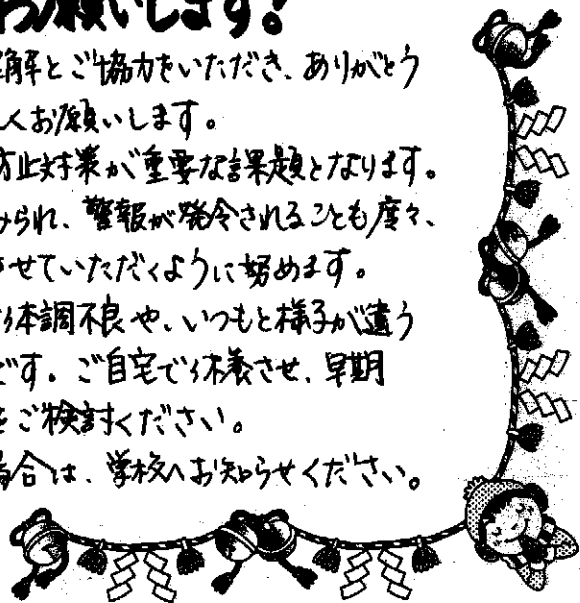 お願いします!
解とご協力をいただき、ありがとう
しくお願いします。
防止対策が重要な課題となります。
みられ、警報が発令されることも度々、
させていただくように努めます。
体調不良や、いつもと様子が違う
です。ご自宅で休養させ、早期
をご検討ください。
場合は、学校へお知らせください。